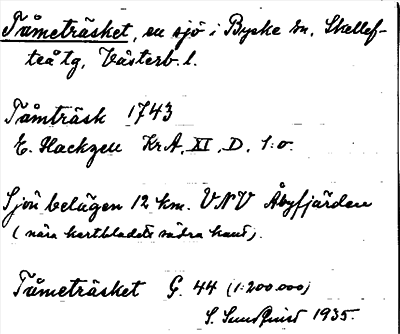 Tåmeträsket, en sjö i Byske sn, Skellef-
teå tg, Västerb. l.
Tåmträsk 1743
E. Hackzell KrA, XI, D, 1:o.
Sjön belägen 12 km. VNV Åbyfjärden
(nära kartbladets södra kant).
Tåmeträsket G. 44 (1:200.000)
S. Sundqvist 1935.